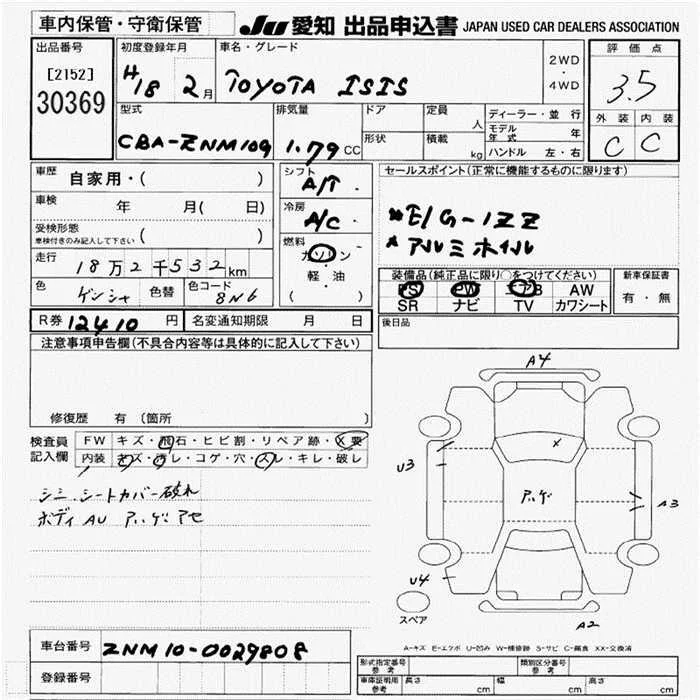 車内保管・守衛保管
JU 愛知 出品申込書 JAPAN USED CAR DEALERS ASSOCIATION
出品番号
[2152]
30369
初度登録年月
H18 2月
車名・グレード
TOYOTA ISIS
2WD
・
4WD
評価点
3.5
外装 内装
C C
型式
CBA-ZNM10G
排気量
1.79 CC
ドア
形状
定員
人
積載
kg
ディーラー・並行
モデル年式 年
ハンドル 左・右
車歴
自家用・( )
車検
年 月( 日)
受検形態
車検付きのみ記入して下さい ( )
走行
18万2千532km
色
ゲンシャ
色替
色コード
8N6
シフト
A/T.
冷房
A/C.
燃料
ガソリン
・
軽・油
( )
セールスポイント(正常に機能するものに限ります)
*E/G-1ZZ
*アルミホイル
装備品(純正品に限り○をつけてください)
PS PW エアB AW
SR ナビ TV カワシート
新車保証書
有・無
R券 12410 円
名変通知期限 月 日
後日品
注意事項申告欄(不具合内容等は具体的に記入して下さい)
修復歴 有 (箇所 )
検査員
記入欄
FW キズ・飛石・ヒビ割・リペア跡・X要
内装 キズ・汚レ・コゲ・穴・スレ・キレ・破レ
シミ シートカバー破れ
ボディAU アハゲ アセ
A4
U3
アハゲ
A3
U4
スペア
A2
A-キズ E-エクボ U-凹み W-補修跡 S-サビ C-腐食 XX-交換済
車台番号
ZNM10-0029808
登録番号
形式指定番号
参考
類別区分番号
参考
車庫証明用
参考
長さ cm 幅 cm 高さ cm